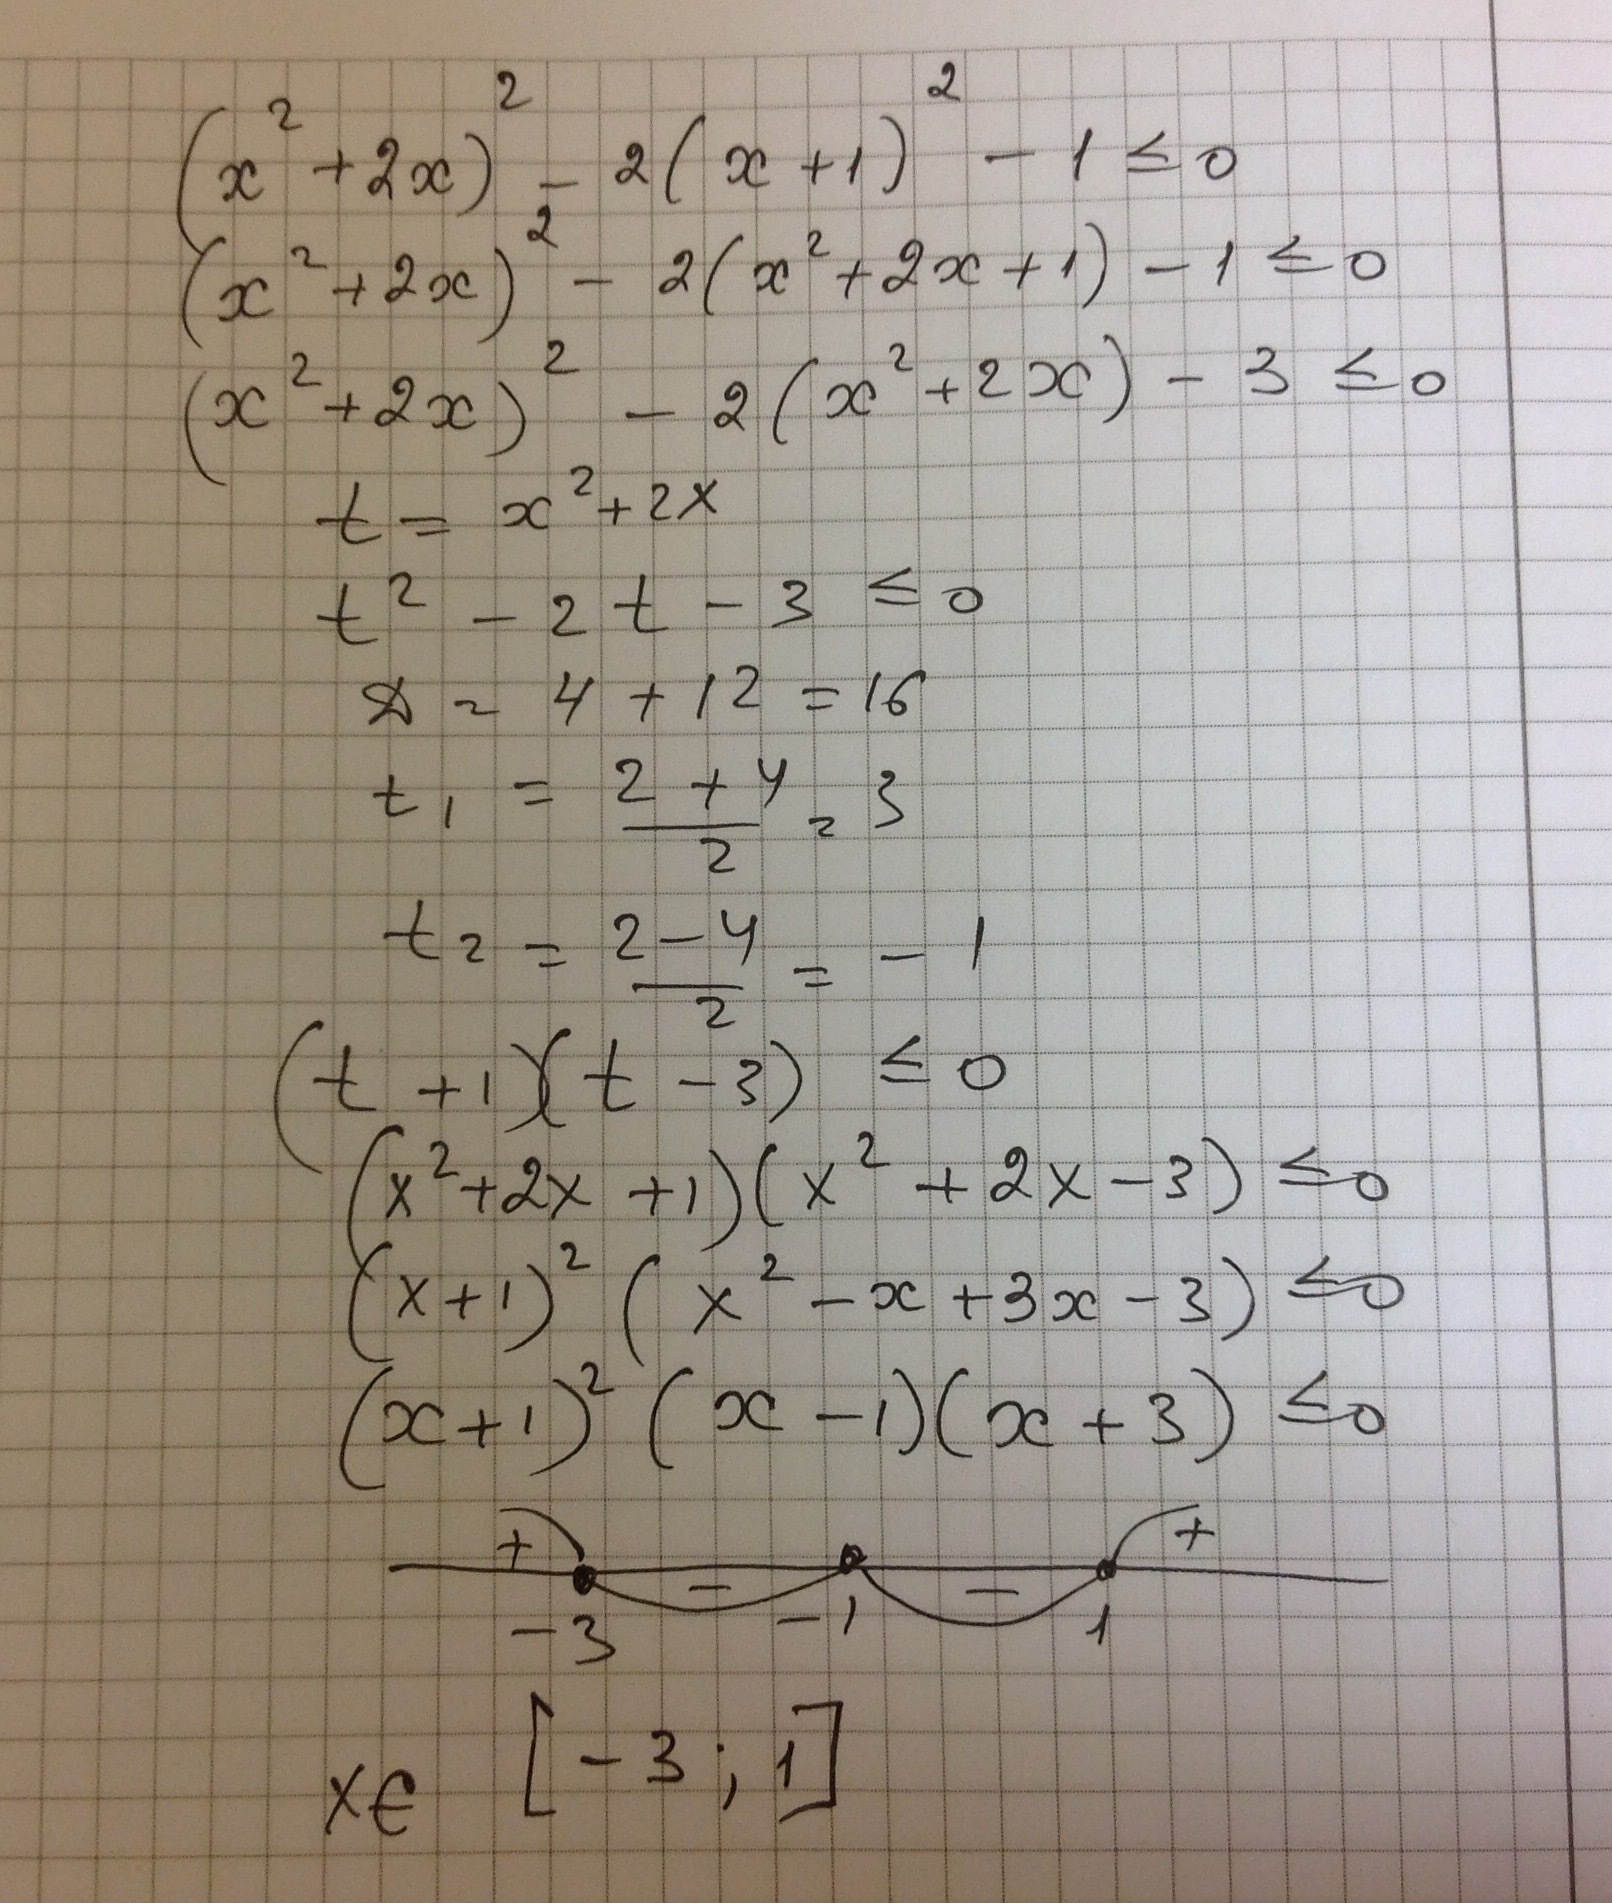 (x² + 2x)² - 2(x + 1)² - 1 ≤ 0
(x² + 2x)² - 2(x² + 2x + 1) - 1 ≤ 0
(x² + 2x)² - 2(x² + 2x) - 3 ≤ 0
t = x² + 2x
t² - 2t - 3 ≤ 0
D = 4 + 12 = 16
t₁ = (2 + 4)/2 = 3
t₂ = (2 - 4)/2 = -1
(t + 1)(t - 3) ≤ 0
(x² + 2x + 1)(x² + 2x - 3) ≤ 0
(x + 1)² (x² - x + 3x - 3) ≤ 0
(x + 1)² (x - 1)(x + 3) ≤ 0
+ - - +
-3 -1 1
x ∈ [-3 ; 1]